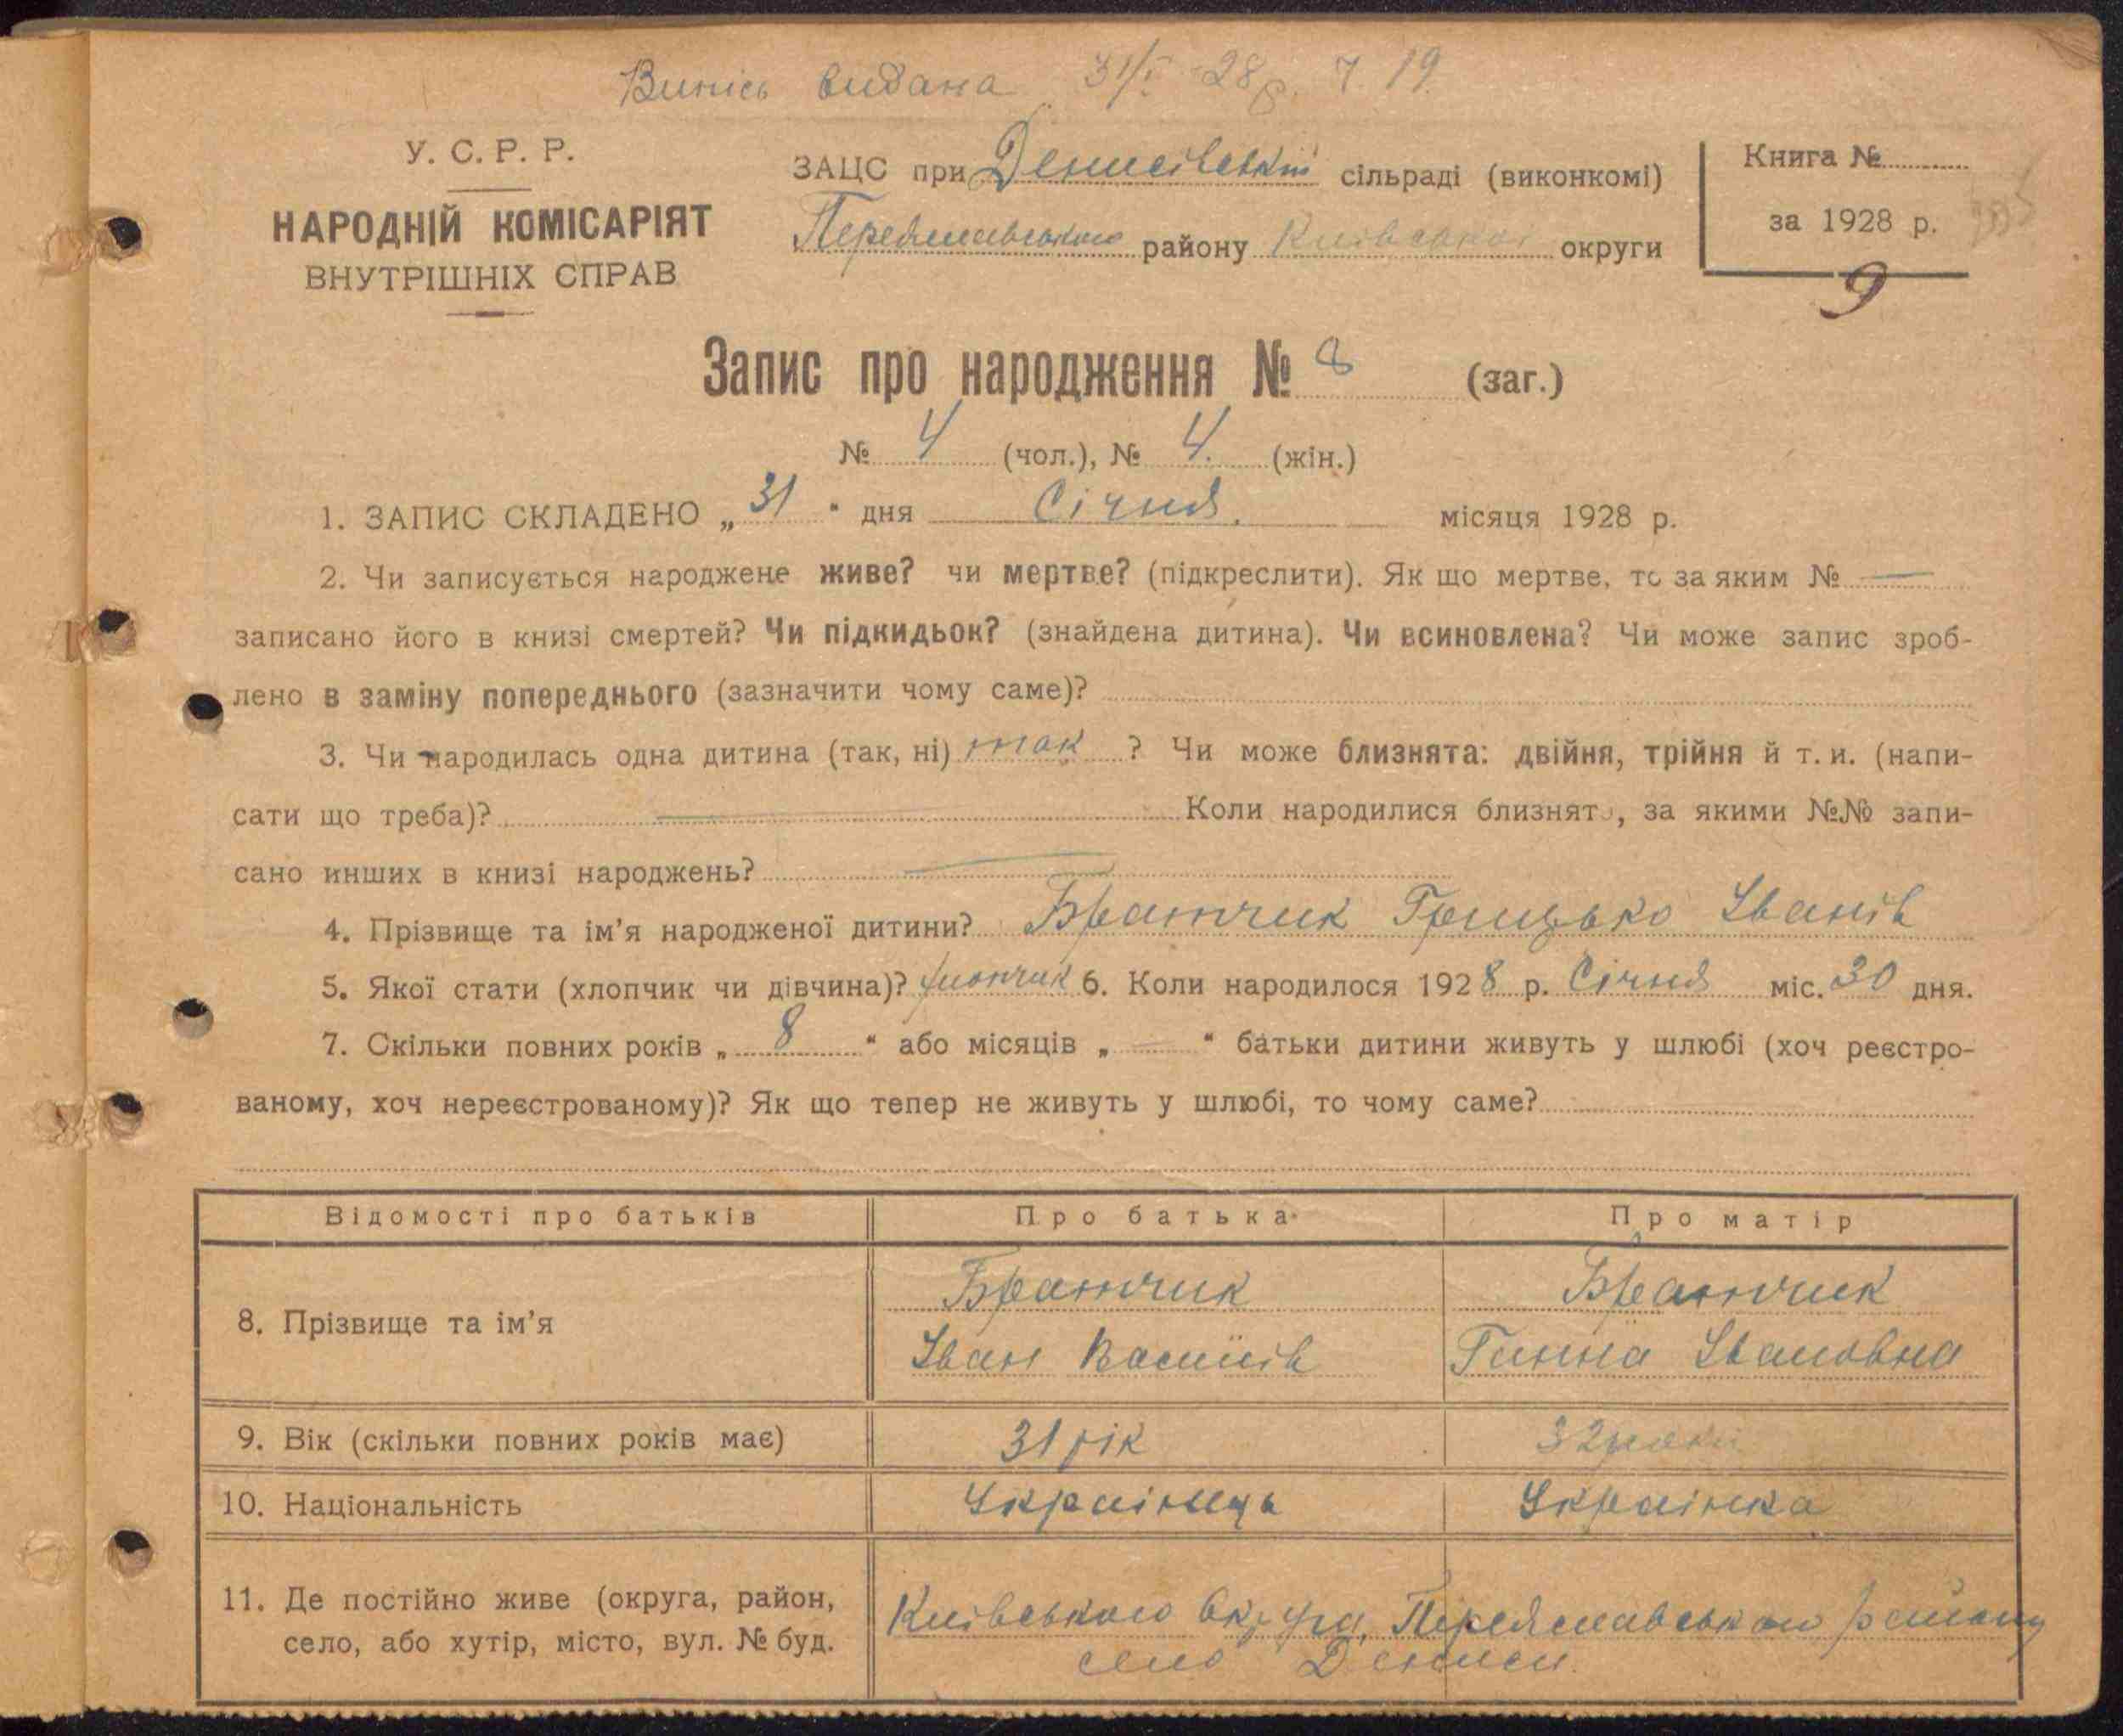 Випись видана 31/I 28р. 7. 19.
У. С. Р. Р.
НАРОДНІЙ КОМІСАРІЯТ
ВНУТРІШНІХ СПРАВ
ЗАЦС при Денисівській сільраді (виконкомі)
Переяславського району Київської округи
Книга №
за 1928 р.
9
Запис про народження № 8 (заг.)
№ 4 (чол.), № 4. (жін.)
1. ЗАПИС СКЛАДЕНО „ 31 “ дня Січня. місяця 1928 р.
2. Чи записується народжене живе? чи мертве? (підкреслити). Як що мертве, то за яким № —
записано його в книзі смертей? Чи підкидьок? (знайдена дитина). Чи всиновлена? Чи може запис зроб-
лено в заміну попереднього (зазначити чому саме)?
3. Чи народилась одна дитина (так, ні) так ? Чи може близнята: двійня, трійня й т. и. (напи-
сати що треба)? — Коли народилися близнята, за якими №№ запи-
сано инших в книзі народжень? —
4. Прізвище та ім'я народженої дитини? Бранчик Грицько Іванів
5. Якої стати (хлопчик чи дівчина)? хлопчик 6. Коли народилося 1928 р. Січня міс. 30 дня.
7. Скільки повних років „ 8 “ або місяців „ — “ батьки дитини живуть у шлюбі (хоч реєстро-
ваному, хоч нереєстрованому)? Як що тепер не живуть у шлюбі, то чому саме?
Відомості про батьків Про батька Про матір
8. Прізвище та ім'я
Бранчик Бранчик
Іван Василів Ганна Івановна
9. Вік (скільки повних років має) 31 рік 32 роки
10. Національність Українець Українка
11. Де постійно живе (округа, район,
село, або хутір, місто, вул. № буд.
Київського Округу, Переяславського району
село Дениси.